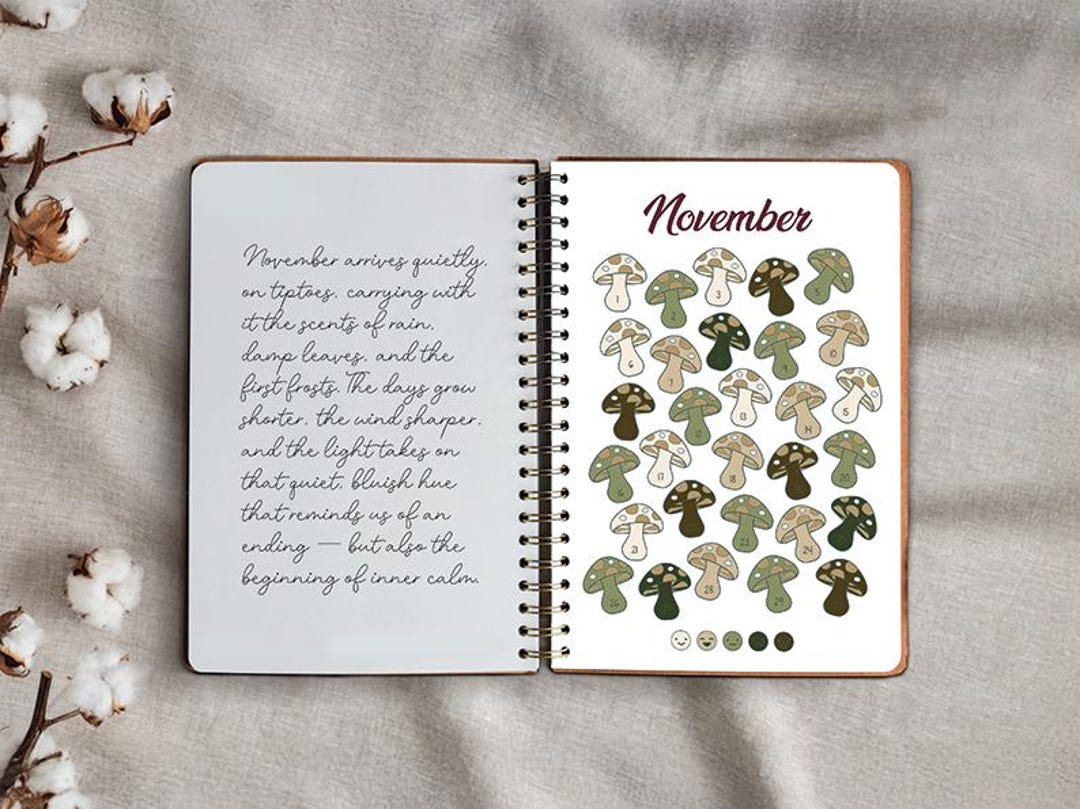 November arrives quietly,
on tiptoes, carrying with
it the scents of rain,
damp leaves, and the
first frosts. The days grow
shorter, the wind sharper,
and the light takes on
that quiet, bluish hue
that reminds us of an
ending — but also the
beginning of inner calm.
November
1
2
3
5
6
7
9
10
12
13
14
15
16
17
18
20
21
23
24
26
28
29